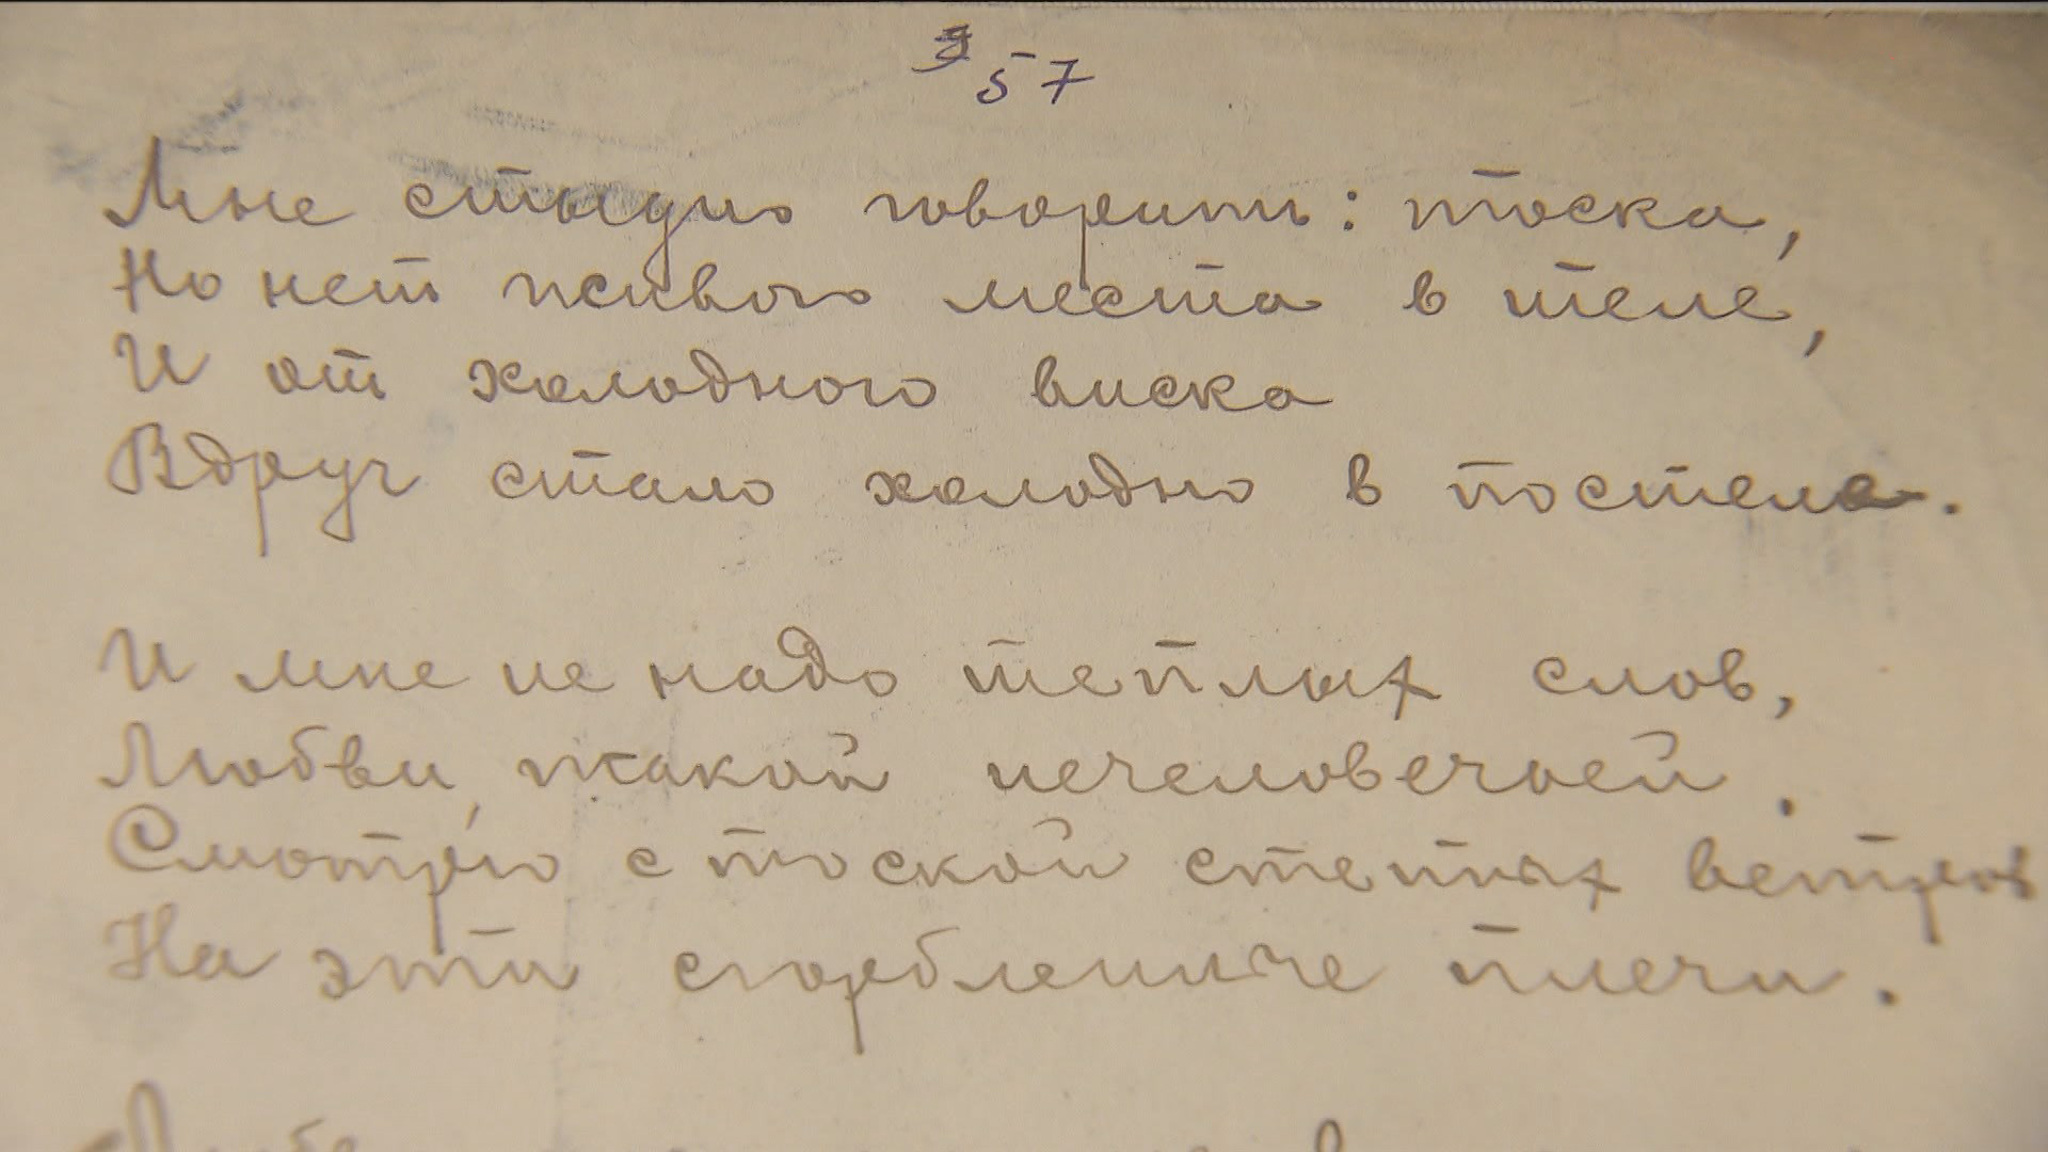 57
Мне стыдно говорить: тоска,
Но нет живого места в теле,
И от холодного виска
Вдруг стало холодно в постеле.
И мне не надо теплых слов,
Любви, такой нечеловечьей.
Смотрю с тоской степных ветров
На эти сгорбленные плечи.